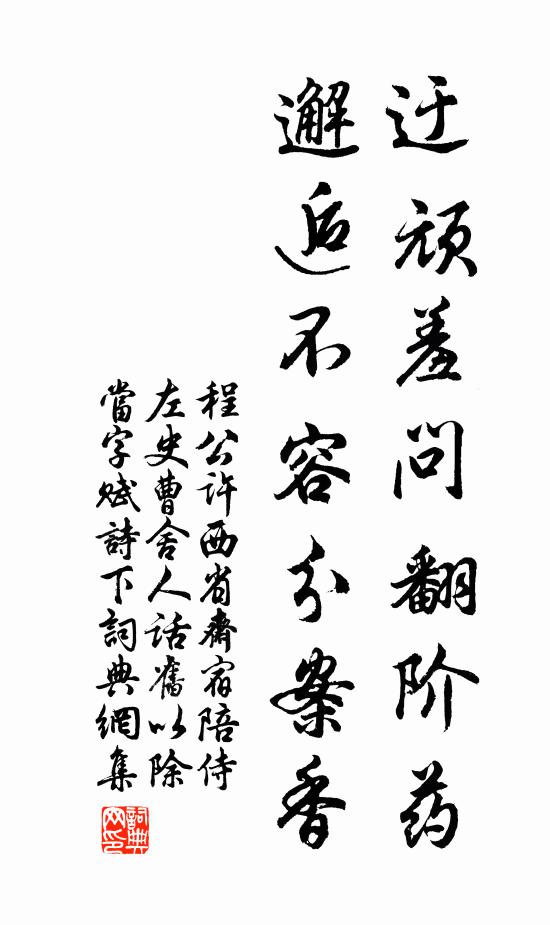 迂顽羞问翻阶药
邂逅不容分案香
程公许西省齋宿陪侍
左史曹舍人话舊以除
當字赋詩下詞典網集
詞典网印